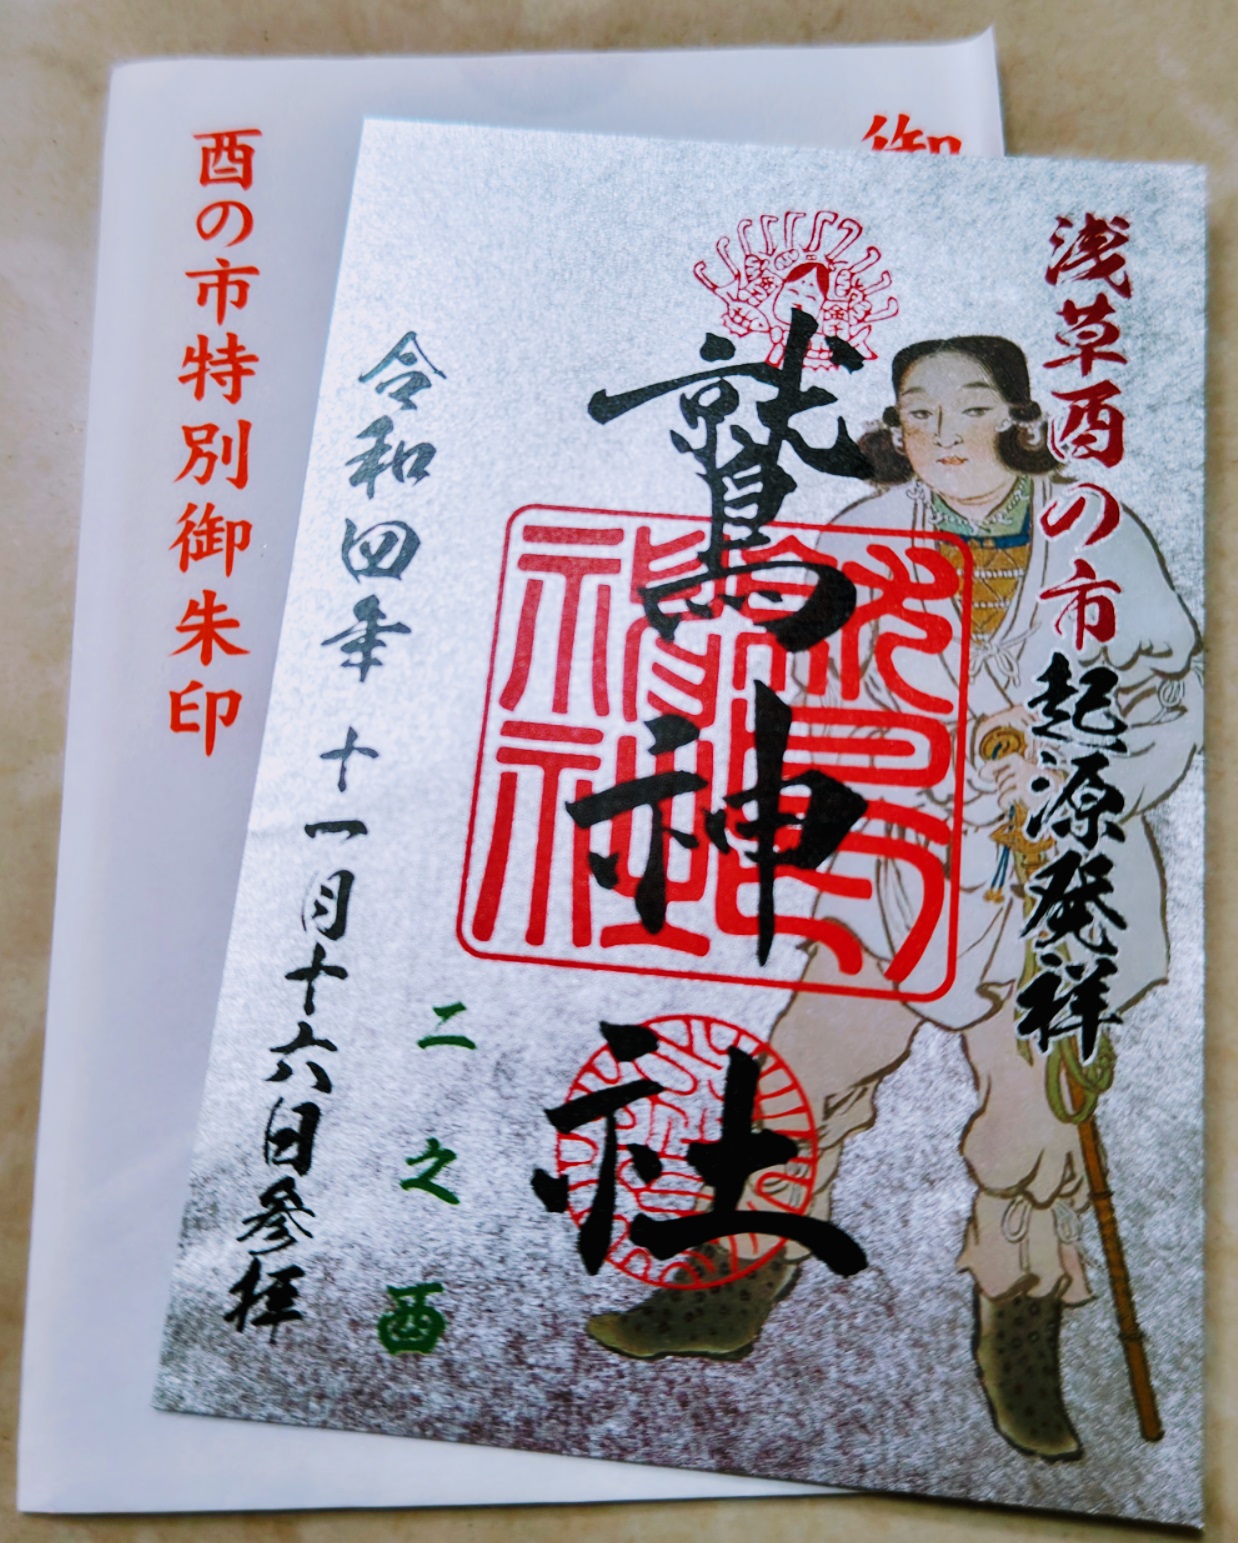 浅草酉の市起源発祥
鷲神社
二之酉
令和四年十一月十六日参拝
御
酉の市特別御朱印